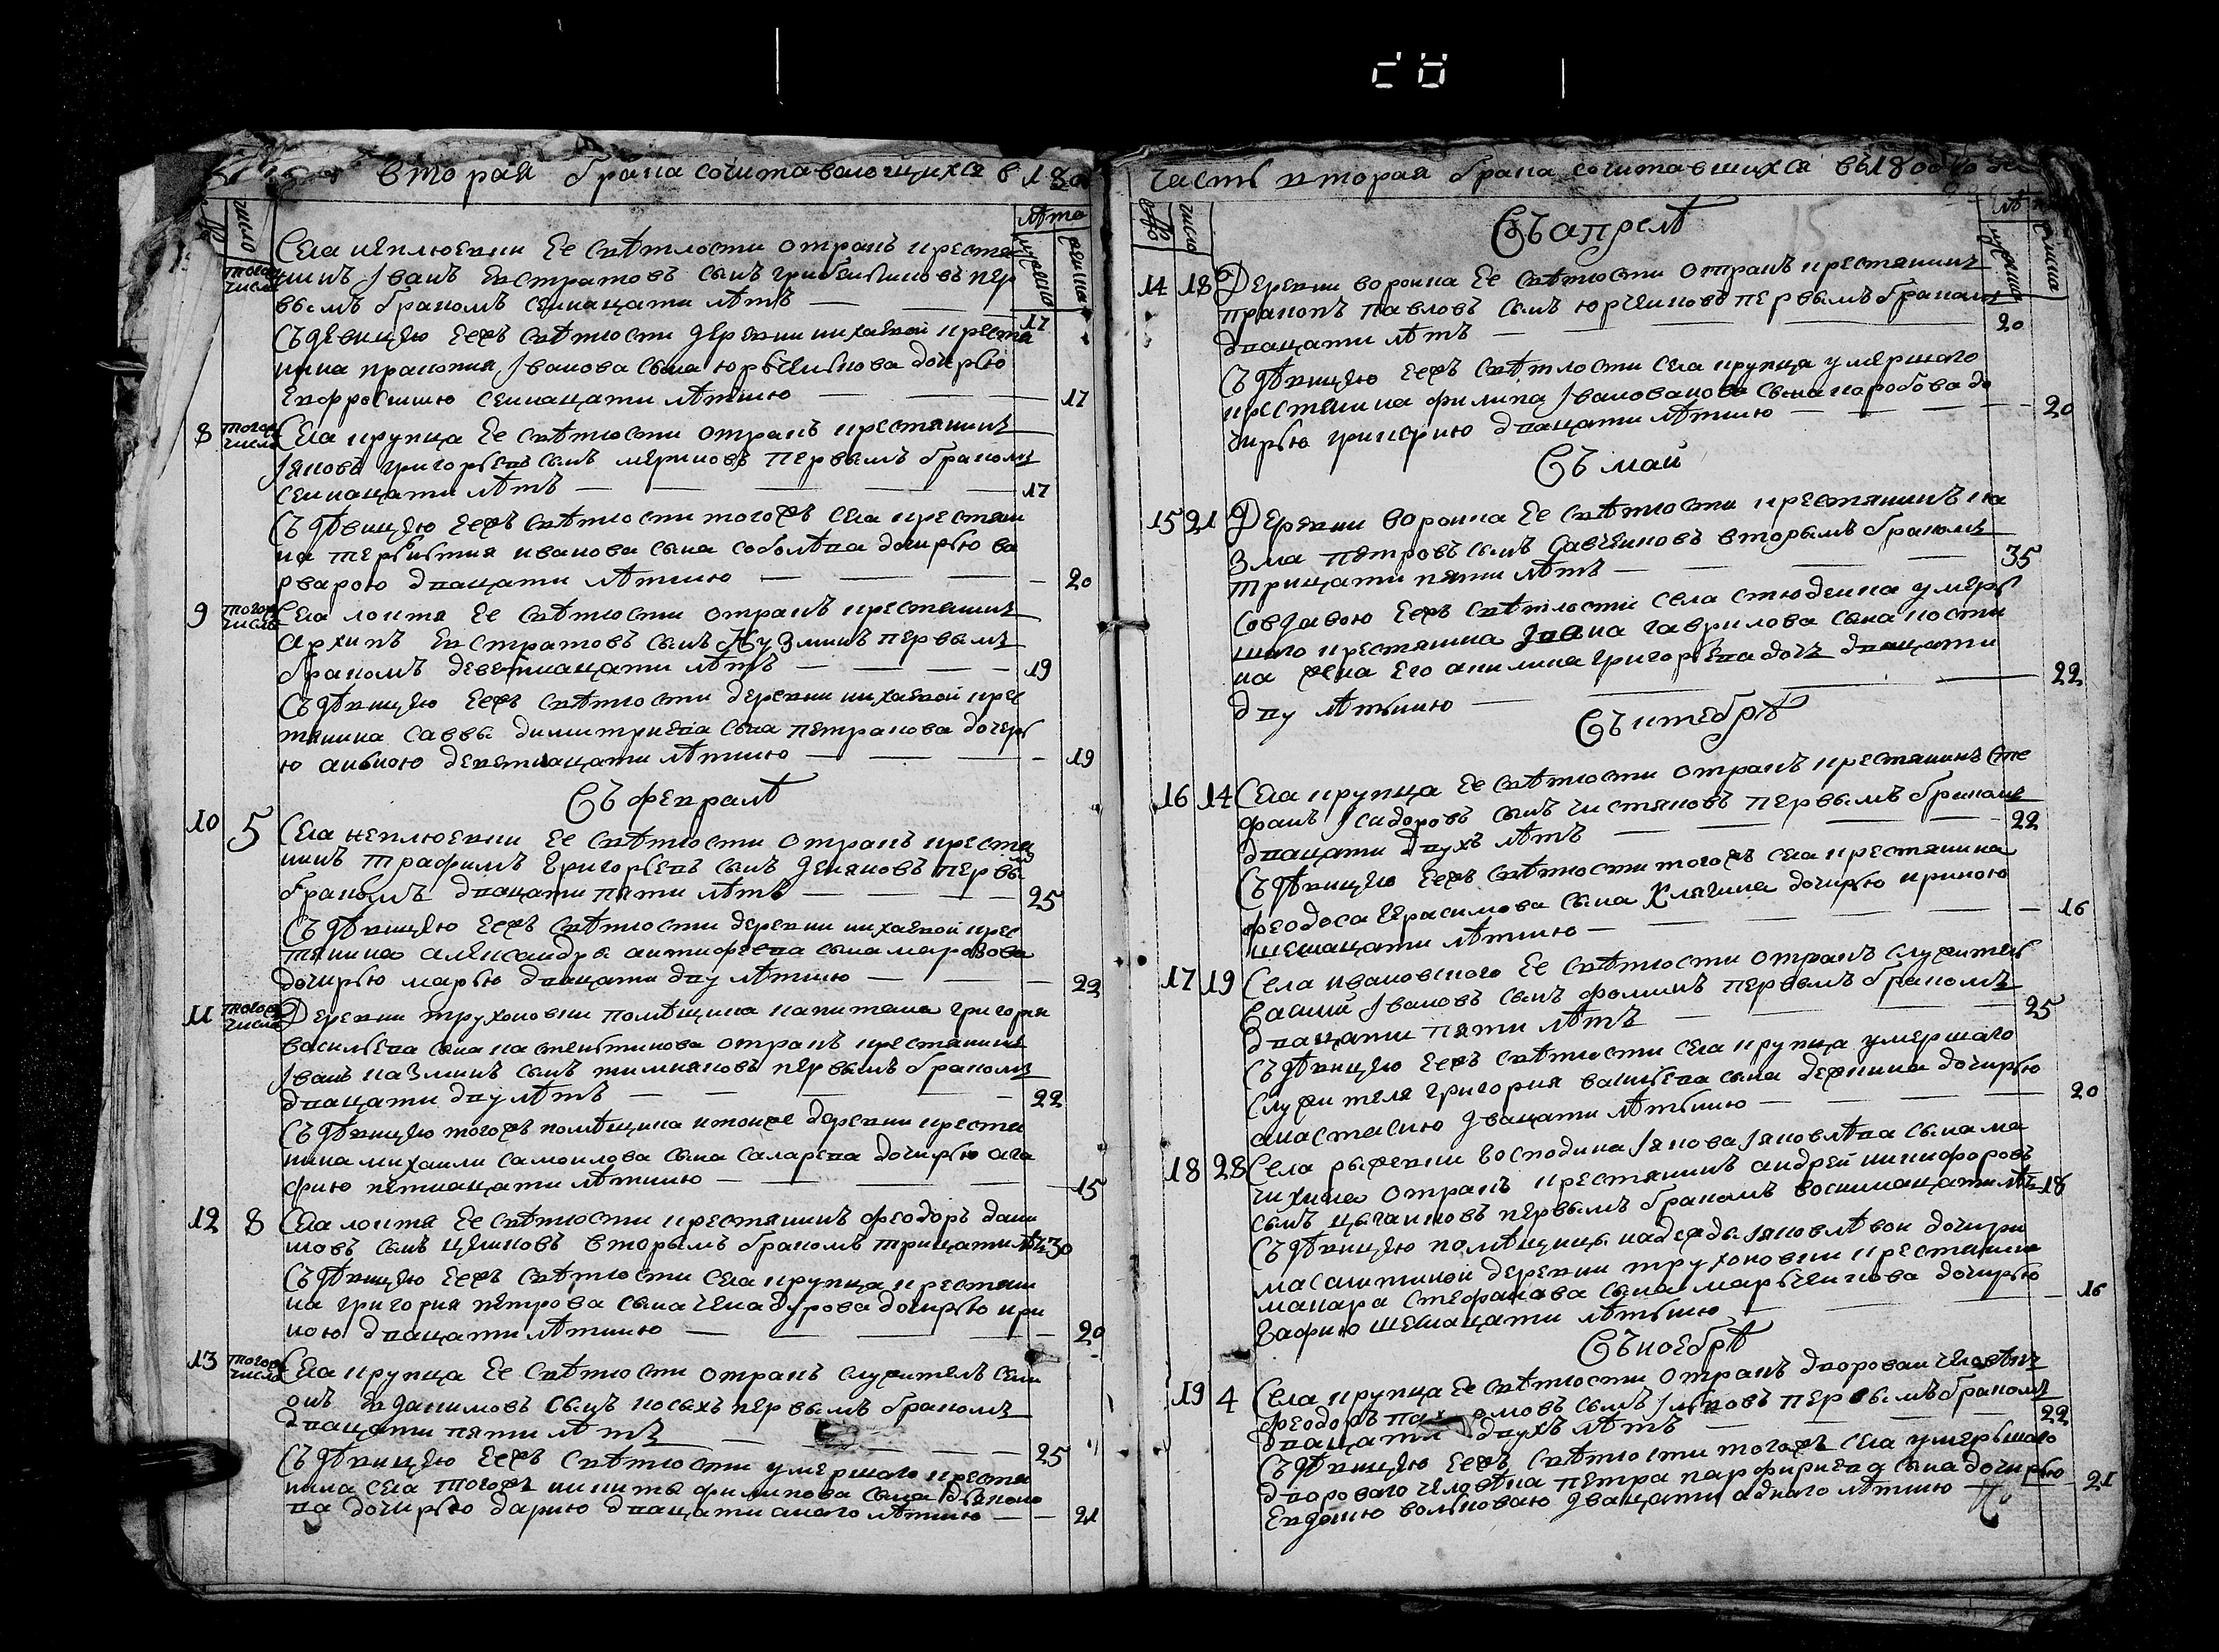 вторая брака сочитавающихся в 180
число
лѣта
Села неплюевки Ее свѣтлости отракъ крестья
того числа
нинъ Іванъ Евстратовъ сынъ грибеньниковъ пер
вымъ бракомъ семнацати лѣтъ
17
Съ дѣвицею Ееяжъ свѣтлости деревни михаевой крестья
нина пракопия Іванова сына юрьченькова дочерью
Евфросинию семнацати лѣтнию
17
8 того числа Села крупца Ее свѣтлости отракъ крестянинъ
Іяковъ григорьевъ сынъ мерковъ первымъ бракомъ
семнацати лѣтъ
17
Съ дѣвицею Ееяжъ свѣтлости тогожъ села крестяни
на терьньтия иванова сына соболѣва дочирью ва
рварою двацати лѣтнию
20
9 того числа Села локтя Ее свѣтлости отракъ крестянинъ
архипъ Евстратовъ сынъ Кузминъ первымъ
бракомъ деветнацати лѣтъ
19
Съ дѣвицею Ееяжъ свѣтлости деревни михаевой крес
тянина саввы димитриева сына петракова дочерь
ю анною деветнацати лѣтнию
19
Съ февралѣ
10 5 Села неплюевки Ее свѣтлости отракъ крестья
нинъ трафимъ Григорьевъ сынъ деняковъ первы
бракомъ двацати пяти лѣтъ
25
Съ дѣвицею Ееяжъ свѣтлости деревни михаевой крес
тянина александры антифеева сына марозова
дочирью марью двацати дву лѣтнию
22
11 того числа Деревни трухоновки помѣщика капитана григория
васильева сына костеньтинова отракъ крестянинъ
Іванъ казминъ сынъ тимняковъ первымъ бракомъ
двацати дву лѣтъ
22
Съ дѣвицею тогожъ помѣщика итойже деревни кресты
нина михаили самоилова сына саларева дочирью ага
фию петнацати лѣтнию
15
12 8 Села локтя Ее свѣтлости крестянинъ феодоръ дани
ловъ сынъ целиковъ вторымъ бракомъ трицати лѣтъ 30
Съ дѣвицею Ееяжъ свѣтлости села крупца крестяни
на григория петрова сына чекадурова дочирью ири
ною двацати лѣтнию
20
13 того числа Села крупца Ее свѣтлости отракъ служитель семи
онъ Евдакимовъ сынъ косыхъ первымъ бракомъ
двацати пяти лѣтъ
25
Съ дѣвицею Ееяжъ свѣтлости умершаго кресты
нина села тогожъ никиты филипова сына дьяконо
ва дочирью дарию двацати аного лѣтнию
21
часть вторая брака сочитавшихся въ 1800
число
Съ апрелѣ
14 18 Деревни воронка Ее свѣтлости отракъ крестянинъ
пракопъ павловъ сынъ юрченковъ первымъ бракомъ
двацати лѣтъ
20
Съ дѣвицею Ееяжъ свѣтлости села крупца умершаго
крестянина филипа Іванованова сына коробова до
чирью гликерию двацати лѣтнию
20
Съ май
15 21 Деревни воронка Ее свѣтлости крестянинъ ко
зма петровъ сынъ Савченковъ вторымъ бракомъ
трицати пяти лѣтъ
35
Совдавою Ееяжъ свѣтлости села студенка умерь
шаго крестянина Івана гаврилова сына кости
на жена его акилина григорьева дочь двацати
дву лѣтьнию
22
Съ нтебрѣ
16 14 Села крупца Ее свѣтлости отракъ крестянинъ сте
фанъ Ісидоровъ сынъ чистяковъ первымъ бракомъ
двацати двухъ лѣтъ
22
Съ дѣвицею Ееяжъ свѣтлости тогожъ села крестянина
феодоса Герасимова сына Клягина дочирью ириною
шеснацати лѣтнию
16
17 19 Села ивановского Ее свѣтлости отракъ служитель
Василий Івановъ сынъ фоминъ первымъ бракомъ
двацати пяти лѣтъ
25
Съ дѣвицею Ееяжъ свѣтлости села крупца умершаго
служителя григория васильева сына дежкина дочирью
анастасию двацати лѣтьнию
20
18 28 Села рыжевки Господина Іякова Іяковлѣва сына ма
чихина отракъ крестянинъ андрей никифоровъ
сынъ цыганковъ первымъ бракомъ восимнацати лѣтъ 18
Съ дѣвицею помѣщицы надежды Іяковлѣвои дочири
масалитиной деревни трухоновки крестянина
макара стефанова сына марьченкова дочирью
Гафию шеснацати лѣтьнию
16
Съ ноебрѣ
19 4 Села крупца Ее свѣтлости отракъ двороваи человѣкъ
феодоръ пахомовъ сынъ Ільковъ первымъ бракомъ
двацати двухъ лѣтъ
22
Съ дѣвицею Ееяжъ свѣтлости тогожъ села умерьшаго
двороваго человѣка петра парфириева сына дочирью
Евдокию вольноваю двацати аднаго лѣтнию
21